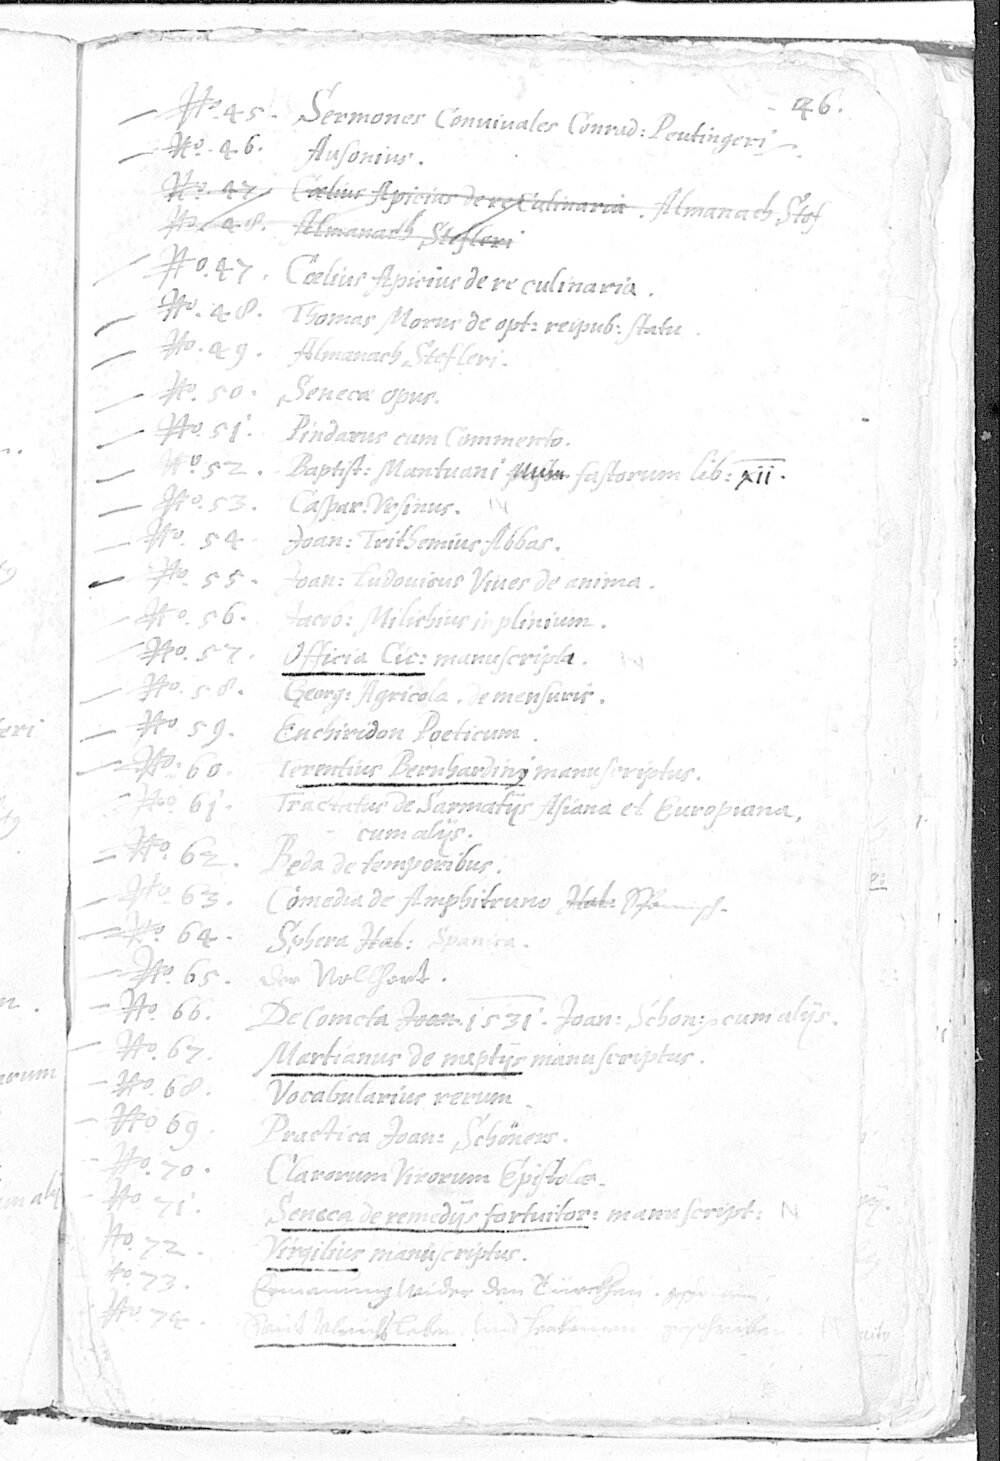 46.
No. 45. Sermones Conuiuales Conrad: Peutingeri
No. 46. Ausonius.
No. 47 Cœlius Apicius de re Culinaria. Almanach Stof
No. 48. Almanach Stefleri
No. 47. Cœlius Apicius de re culinaria.
No. 48. Thomas Morus de opt: reipub: statu.
No. 49. Almanach Stefleri.
No. 50. Senecæ opus.
No. 51. Pindarus cum Commento.
No. 52. Baptist: Mantuani fastorum lib: xii.
No. 53. Caspar: Vrsinus. N
No. 54 Joan: Trithemius Abbas.
No. 55. Joan: Ludouicus Viues de anima.
No. 56. Jacob: Milichius in plinium.
No. 57. Officia Cic: manuscripta. N
No. 58. Georg: Agricola. de mensuris.
No. 59. Enchiridon Poeticum.
No. 60. Terentius Bernhardini manuscriptus.
No. 61. Tractatus de Sarmatijs Asiana et Europiana,
cum alijs.
No. 62. Beda de temporibus.
No. 63. Comedia de Amphitruno Ital: Spanisch.
No. 64. Sphera Ital: Spanica.
No. 65. der Vollhart.
No. 66. De Cometa Joan. 1531. Joan: Schon: cum alijs.
No. 67. Martianus de nuptijs manuscriptus.
No. 68. Vocabularius rerum
No. 69. Practica Joan: Schöners.
No. 70. Clarorum Virorum Epistolæ.
No. 71. Seneca de remedijs fortuitor: manuscript: N
No. 72. Virgilius manuscriptus.
No. 73. Ermanung wider den Türckhen.
No. 74. Sant leben und geschriben